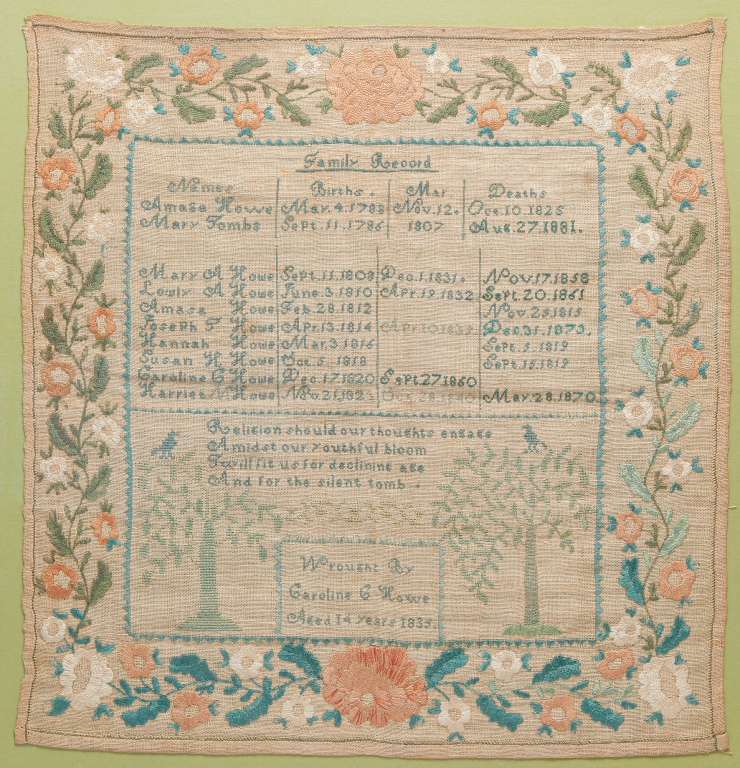 Family Record
Names Births. Mar. Deaths
Amasa Howe Mar. 4. 1783 Nov. 12. Oct. 10. 1825
Mary Tombs Sept. 11. 1786 1807 Aug. 27. 1881.
Mary A Howe Sept. 11. 1808 Dec. 1. 1831. Nov. 17. 1858
Lowly A Howe June. 3. 1810 Apr. 19. 1832 Sept. 20. 1861
Amasa Howe Feb. 28. 1812 Nov. 25. 1815
Joseph T Howe Apr. 13. 1814 Apr. 10. 1839 Dec. 31. 1873.
Hannah Howe Mar. 3. 1816 Sept. 5. 1819
Susan H Howe Oct. 5. 1818 Sept. 15. 1819
Caroline C Howe Dec. 17. 1820 Sept 27 1850
Harriet N Howe Nov. 21. 1823 Oct. 28. 1840 May. 28. 1870.
Religion should our thoughts engage
Amidst our youthful bloom
Twill fit us for declining age
And for the silent tomb.
Wrought By
Caroline C Howe
Aged 14 years 1835